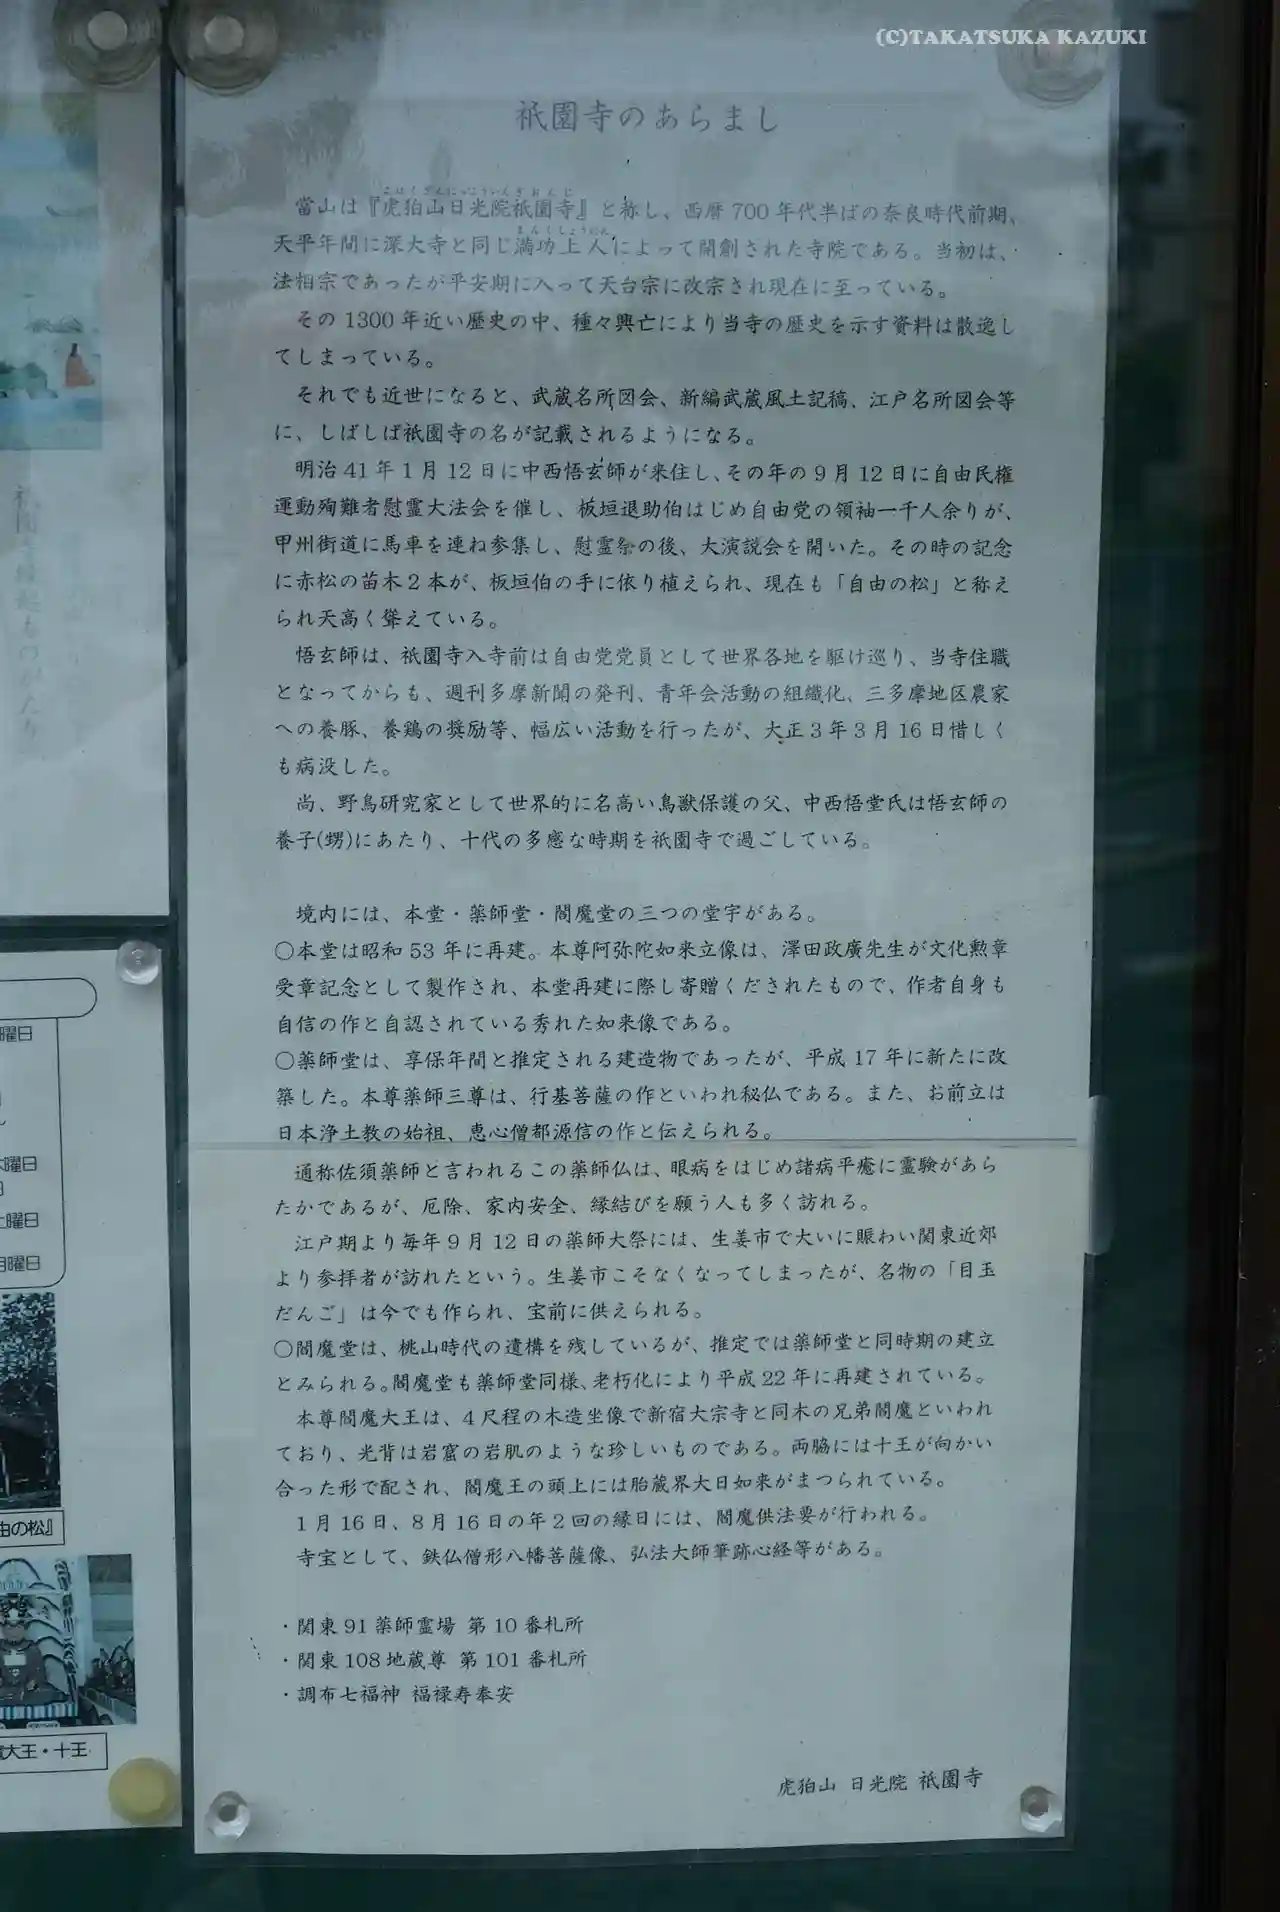 (C)TAKATSUKA KAZUKI
祇園寺のあらまし
當山は『虎狛山日光院祇園寺』と称し、西暦700年代半ばの奈良時代前期、
天平年間に深大寺と同じ満功上人によって開創された寺院である。当初は、
法相宗であったが平安期に入って天台宗に改宗され現在に至っている。
その1300年近い歴史の中、種々興亡により当寺の歴史を示す資料は散逸し
てしまっている。
それでも近世になると、武蔵名所図会、新編武蔵風土記稿、江戸名所図会等
に、しばしば祇園寺の名が記載されるようになる。
明治41年1月12日に中西悟玄師が来住し、その年の9月12日に自由民権
運動殉難者慰霊大法会を催し、板垣退助伯はじめ自由党の領袖一千人余りが、
甲州街道に馬車を連ね参集し、慰霊祭の後、大演説会を開いた。その時の記念
に赤松の苗木2本が、板垣伯の手に依り植えられ、現在も「自由の松」と称え
られ天高く聳えている。
悟玄師は、祇園寺入寺前は自由党党員として世界各地を駆け巡り、当寺住職
となってからも、週刊多摩新聞の発刊、青年会活動の組織化、三多摩地区農家
への養豚、養鶏の奨励等、幅広い活動を行ったが、大正3年3月16日惜しく
も病没した。
尚、野鳥研究家として世界的に名高い鳥獣保護の父、中西悟堂氏は悟玄師の
養子(甥)にあたり、十代の多感な時期を祇園寺で過ごしている。
境内には、本堂・薬師堂・閻魔堂の三つの堂宇がある。
○本堂は昭和53年に再建。本尊阿弥陀如来立像は、澤田政廣先生が文化勲章
受章記念として製作され、本堂再建に際し寄贈くだされたもので、作者自身も
自信の作と自認されている秀れた如来像である。
○薬師堂は、享保年間と推定される建造物であったが、平成17年に新たに改
築した。本尊薬師三尊は、行基菩薩の作といわれ秘仏である。また、お前立は
日本浄土教の始祖、恵心僧都源信の作と伝えられる。
通称佐須薬師と言われるこの薬師仏は、眼病をはじめ諸病平癒に霊験があら
たかであるが、厄除、家内安全、縁結びを願う人も多く訪れる。
江戸期より毎年9月12日の薬師大祭には、生姜市で大いに賑わい関東近郊
より参拝者が訪れたという。生姜市こそなくなってしまったが、名物の「目玉
だんご」は今でも作られ、宝前に供えられる。
○閻魔堂は、桃山時代の遺構を残しているが、推定では薬師堂と同時期の建立
とみられる。閻魔堂も薬師堂同様、老朽化により平成22年に再建されている。
本尊閻魔大王は、4尺程の木造坐像で新宿大宗寺と同木の兄弟閻魔といわれ
ており、光背は岩窟の岩肌のような珍しいものである。両脇には十王が向かい
合った形で配され、閻魔王の頭上には胎蔵界大日如来がまつられている。
1月16日、8月16日の年2回の縁日には、閻魔供法要が行われる。
寺宝として、鉄仏僧形八幡菩薩像、弘法大師筆跡心経等がある。
・関東91薬師霊場 第10番札所
・関東108地蔵尊 第101番札所
・調布七福神 福禄寿奉安
虎狛山 日光院 祇園寺
曜日
木曜日
土曜日
曜日
由の松』
大王・十王